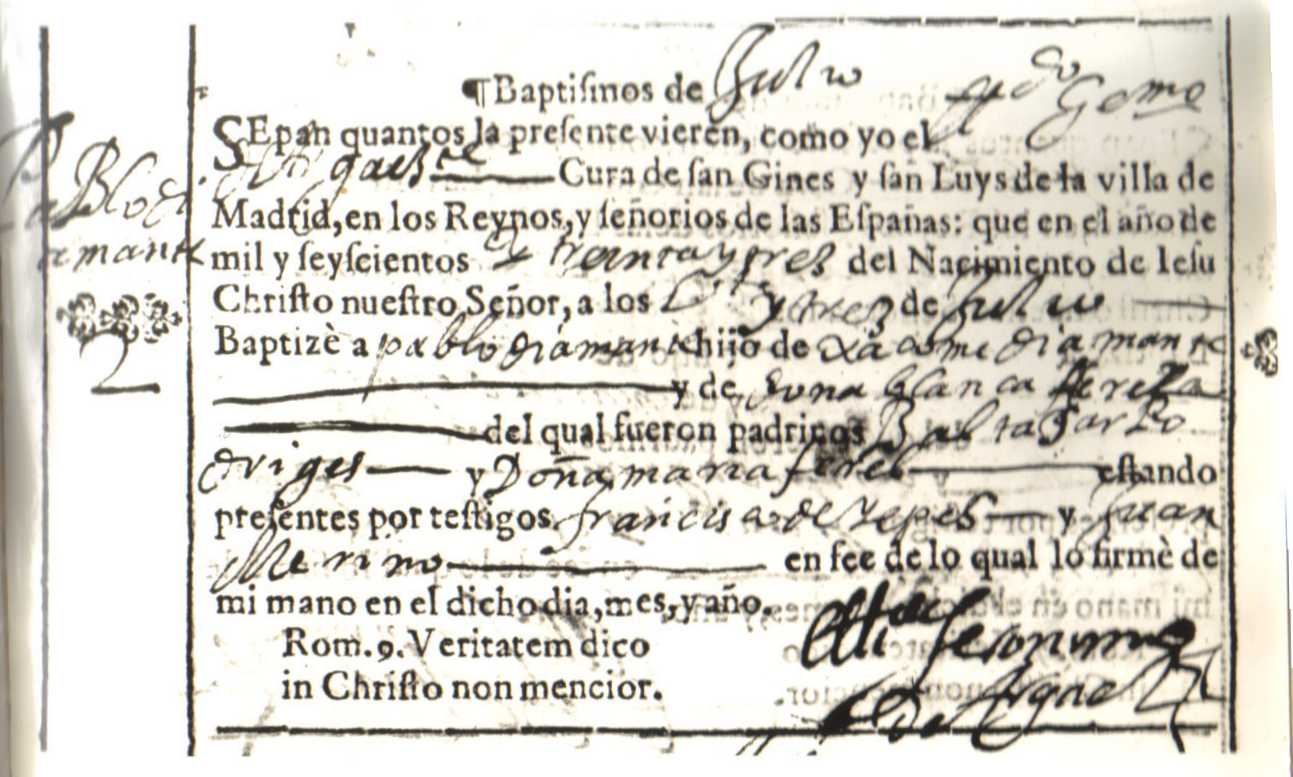 ¶Baptiſmos de Jullio
SEpan quantos la preſente vieren, como yo el
Cura de ſan Gines y ſan Luys de la villa de
Pablo di
Madrid, en los Reynos, y ſeñorios de las Eſpañas: que en el año de
amante
mil y ſeyſcientos y treinta y tres del Nacimiento de Ieſu
Chriſto nueſtro Señor, a los y tres de Jullio
Baptizè a pablo diamante hijo de diamante
2
y de dona blanca
del qual fueron padrinos Baltasar Ro
driges y Doña maria eſtando
preſentes por teſtigos francisco de Yepes y Juan
Merino en fee de lo qual lo firmè de
mi mano en el dicho dia, mes, y año.
Rom. 9. Veritatem dico
in Chriſto non mencior.